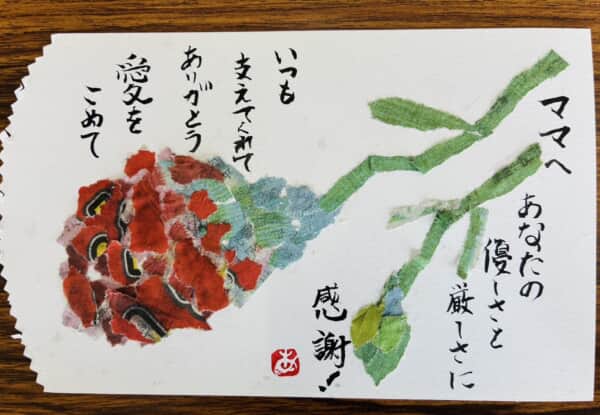 ママへ
あなたの
優しさと
厳しさに
感謝!
いつも
支えてくれて
ありがとう
愛を
こめて
あ